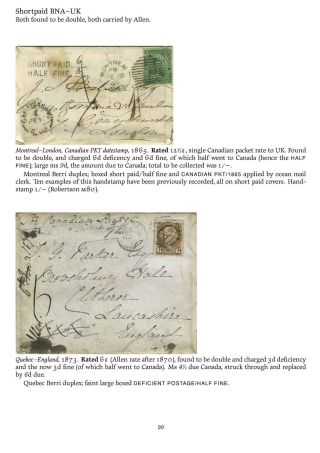 Shortpaid BNA–UK
Both found to be double, both carried by Allen.
SHORT PAID
HALF FINE
Montreal–London, Canadian PKT datestamp, 1865. Rated 12½¢, single Canadian packet rate to UK. Found
to be double, and charged 6d deficency and 6d fine, of which half went to Canada (hence the HALF
FINE); large ms 9d, the amount due to Canada; total to be collected was 1/–.
Montreal Berri duplex; boxed short paid/half fine and CANADIAN PKT/1865 applied by ocean mail
clerk. Ten examples of this handstamp have been previously recorded, all on short paid covers. Hand-
stamp 1/– (Robertson M80).
Parker Esq
Lancashire
England
Quebec–England, 1873. Rated 6¢ (Allen rate after 1870), found to be double and charged 3d deficiency
and the now 3d fine (of which half went to Canada). Ms 4½ due Canada, struck through and replaced
by 6d due.
Quebec Berri duplex; faint large boxed DEFICIENT POSTAGE/HALF FINE.
99